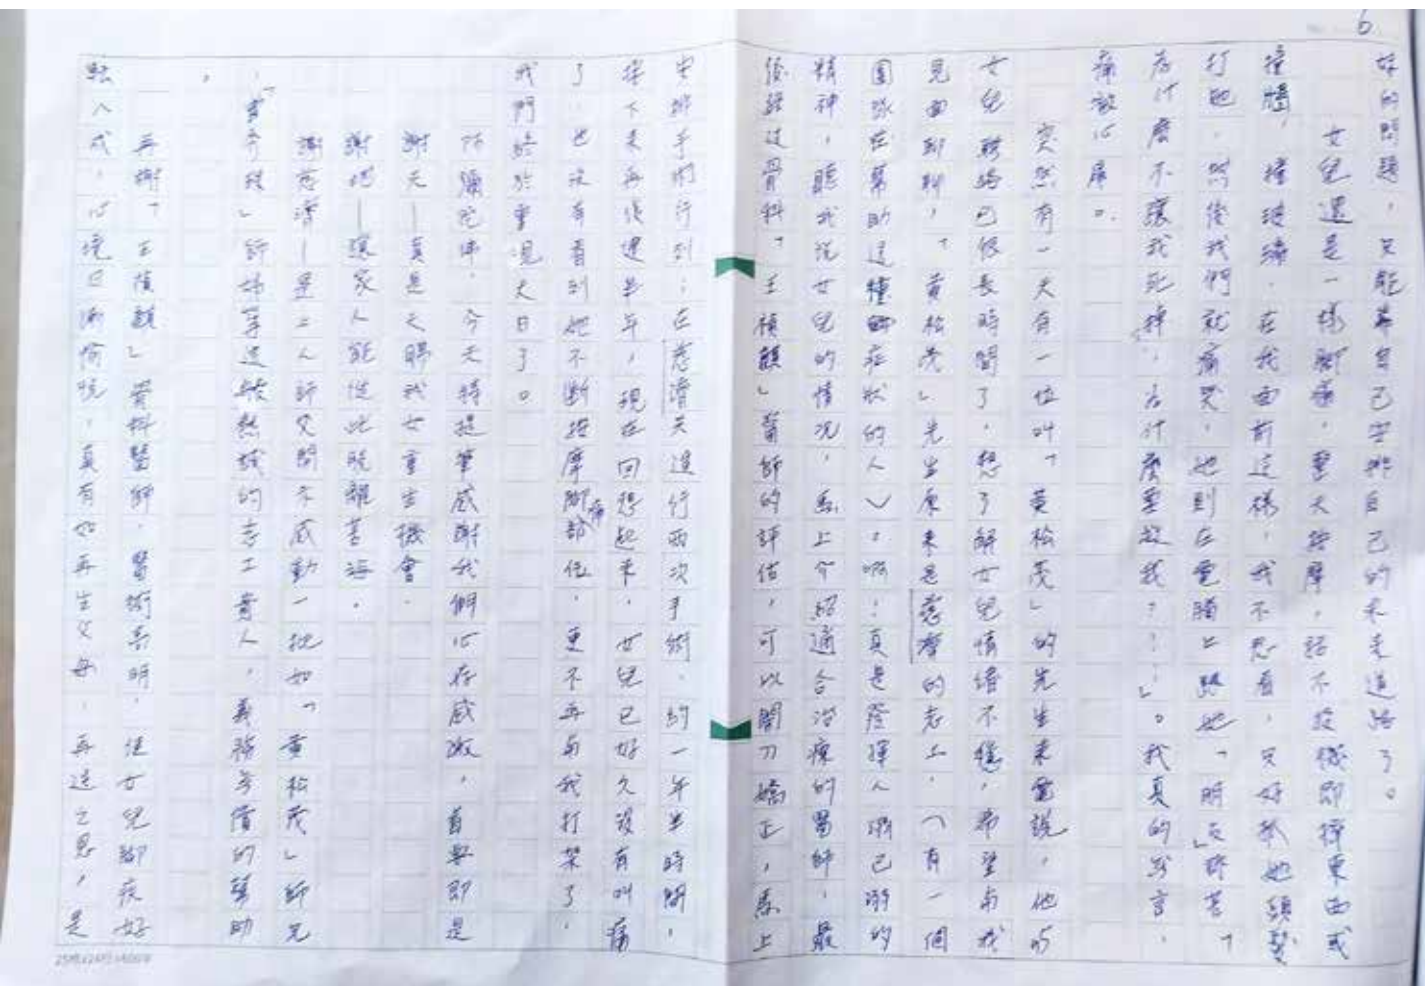 6
好的問題，只能靠自己安排自己的未來道路了。
女兒還是一樣腳痛，整天按摩，話不投機即摔東西或
撞牆，撞玻璃，在我面前這樣，我不忍看，只好抓她頭髮
打她，然後我們就痛哭，她則在電腦上PO她「明天」好苦「
為什麼不讓我死掉，為什麼要救我？？」。我真的無言，
痛徹心扉。
突然有一天有一位叫「黃松茂」的先生來電說，他的
女兒聯絡已很長時間了，想了解女兒情緒不穩，希望與我
見面聊聊，「黃松茂」先生原來是慈濟的志工，（有一個
團隊在幫助這種症狀的人）。啊！真是發揮人溺己溺的
精神，聽我說女兒的情況，馬上介紹適合治療的醫師，最
後經過骨科「王禎麒」醫師的評估，可以開刀矯正，馬上
安排手術行列；在慈濟天進行兩次手術，約一年半時間，
接下來再復建半年，現在回想起來，女兒已好久沒有叫痛
了，也沒有看到她不斷按摩腳痛部位，更不再與我打架了，
我們終於重見天日了。
阿彌陀佛，今天特提筆感謝我們心存感激，首要即是
謝天—真是天賜我女重生機會，
謝地—讓家人能從此脫離苦海，
謝慈濟—是上人師父間不感動一批如「黃松茂」師兄
，「」師姊等這熱誠的志工貴人，義務無價的幫助
，
再謝「王禎麒」骨科醫師，醫術高明，使女兒腳疾好
轉入戒，心境日漸愉悅，真有如再生父母，再造之恩，是